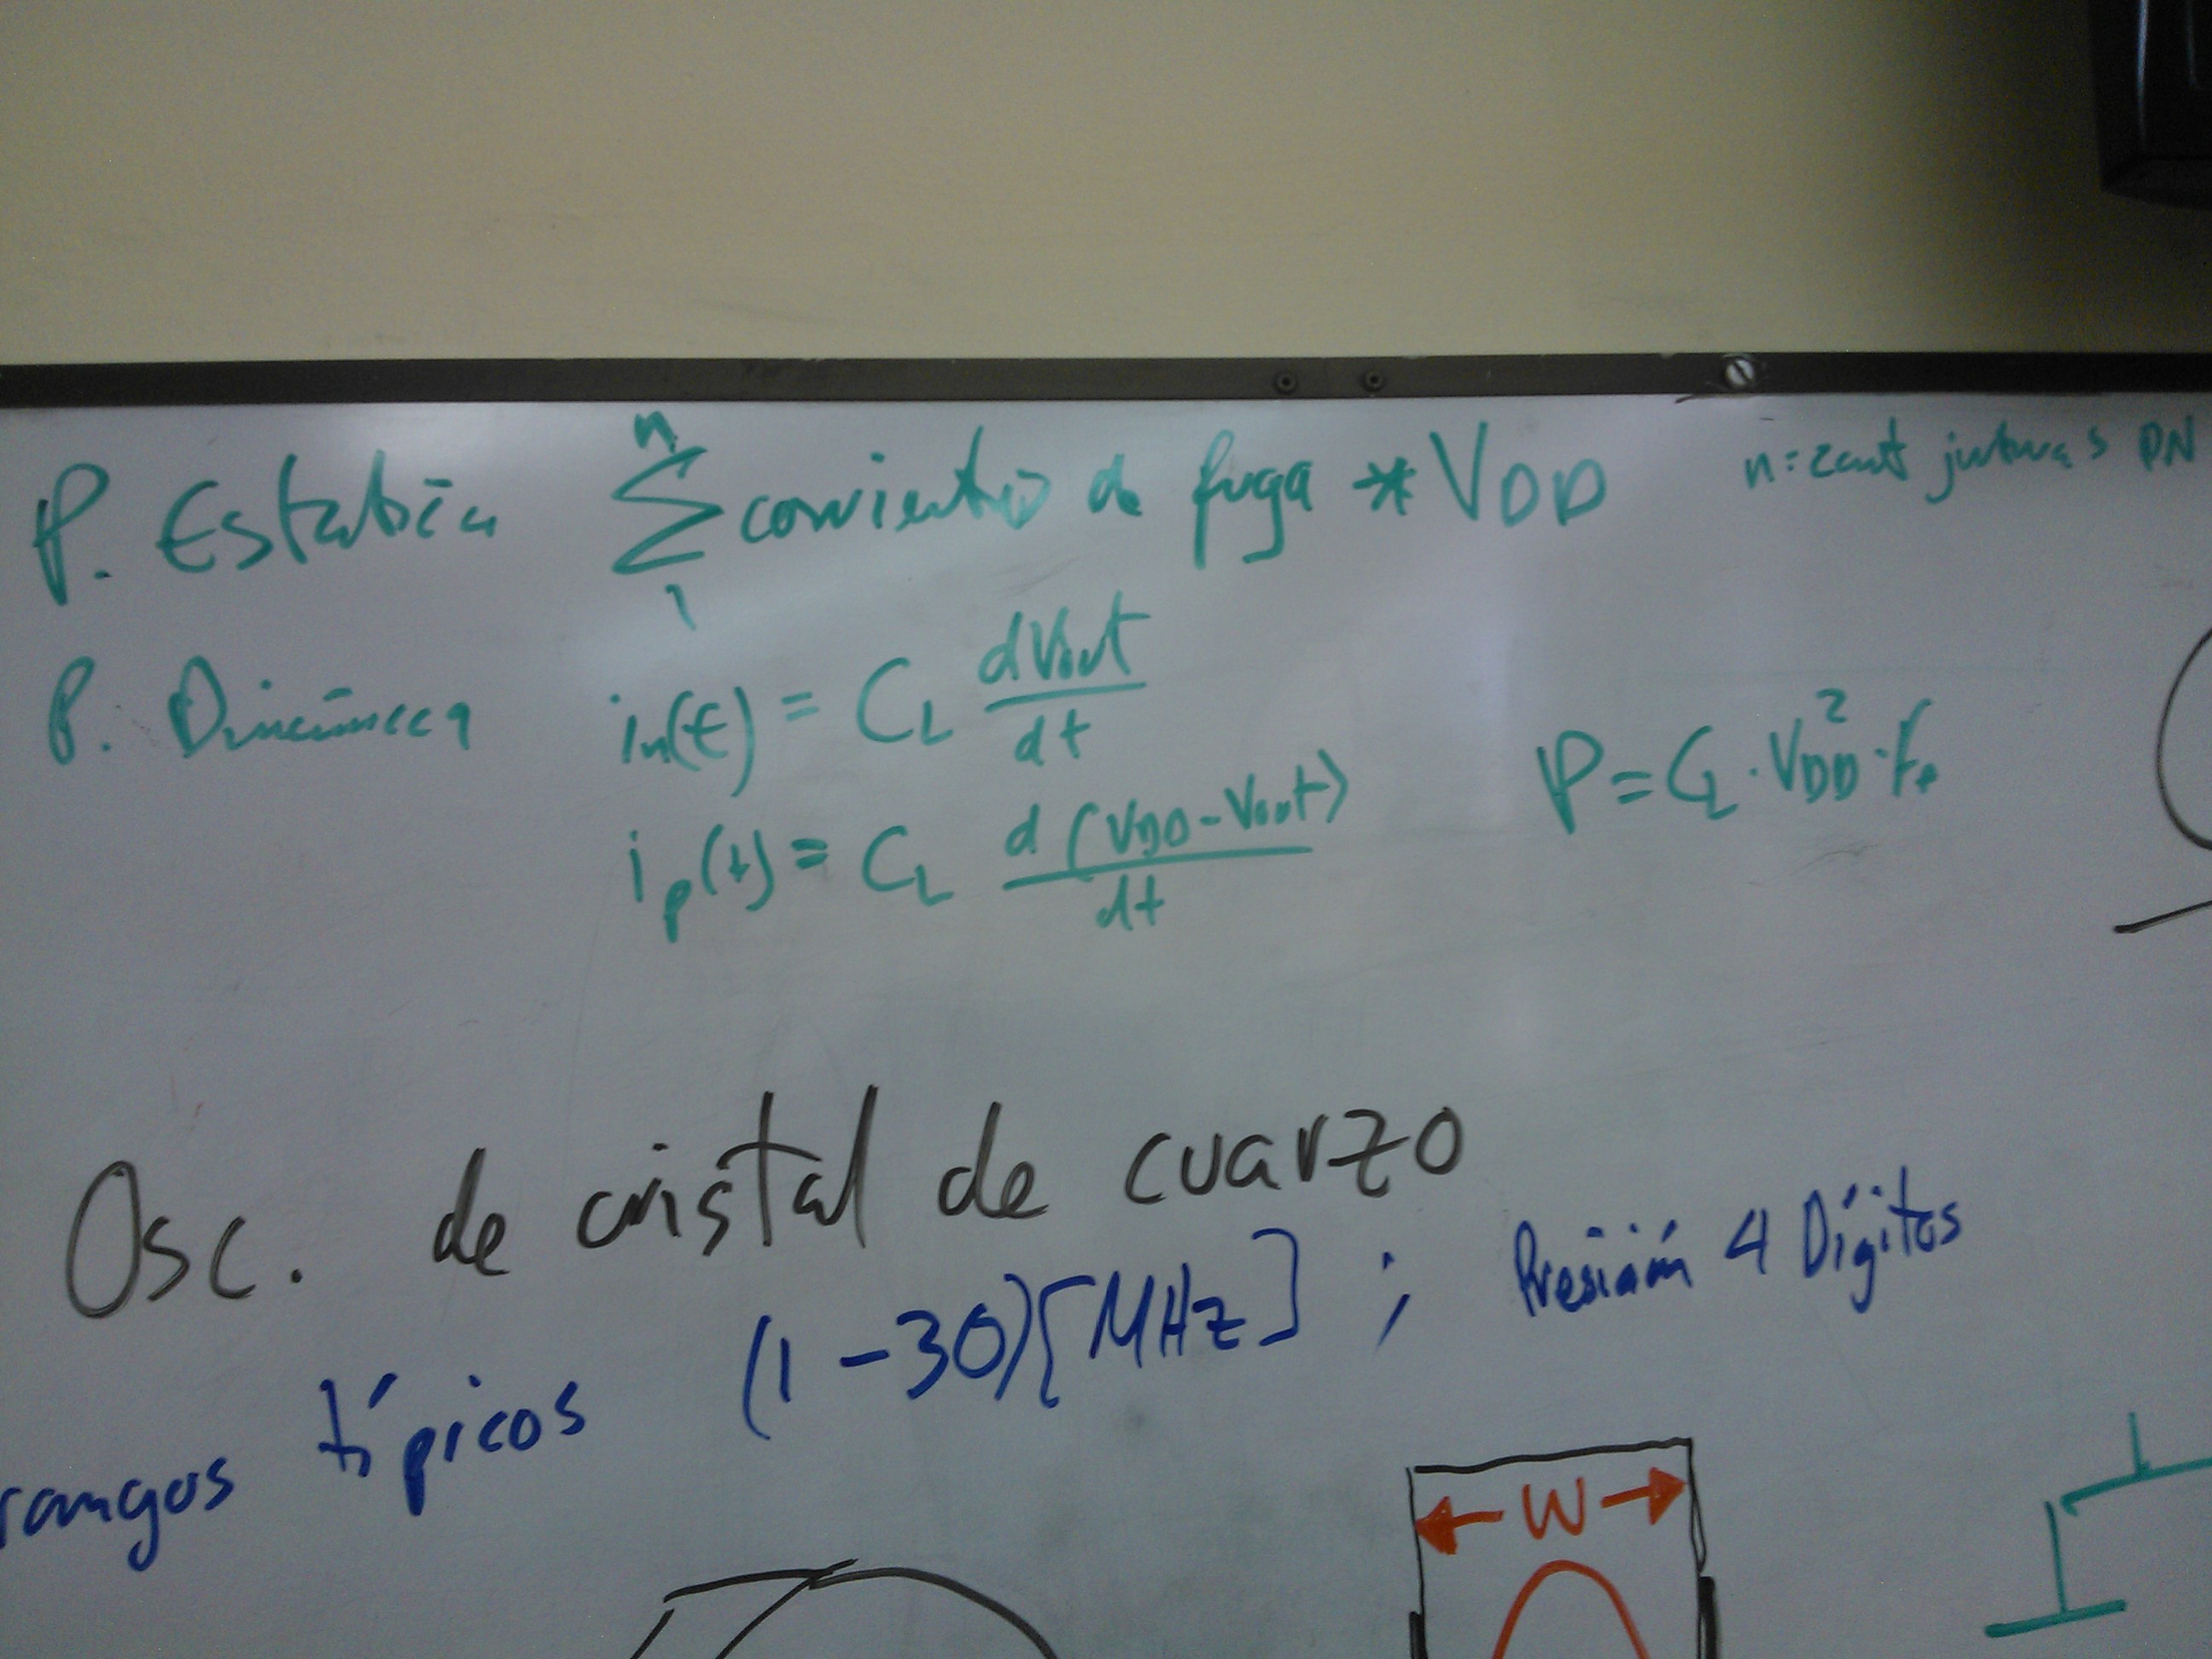 P. Estatica n Σ 1 corriente de fuga * VDD n = cant junturas PN
P. Dinámica in(t) = CL dVout/dt
ip(t) = CL d(VDD - Vout)/dt P = CL · VDD² · fp
Osc. de cristal de cuarzo
rangos típicos (1 - 30)[MHz] ; Presición 4 Dígitos
W